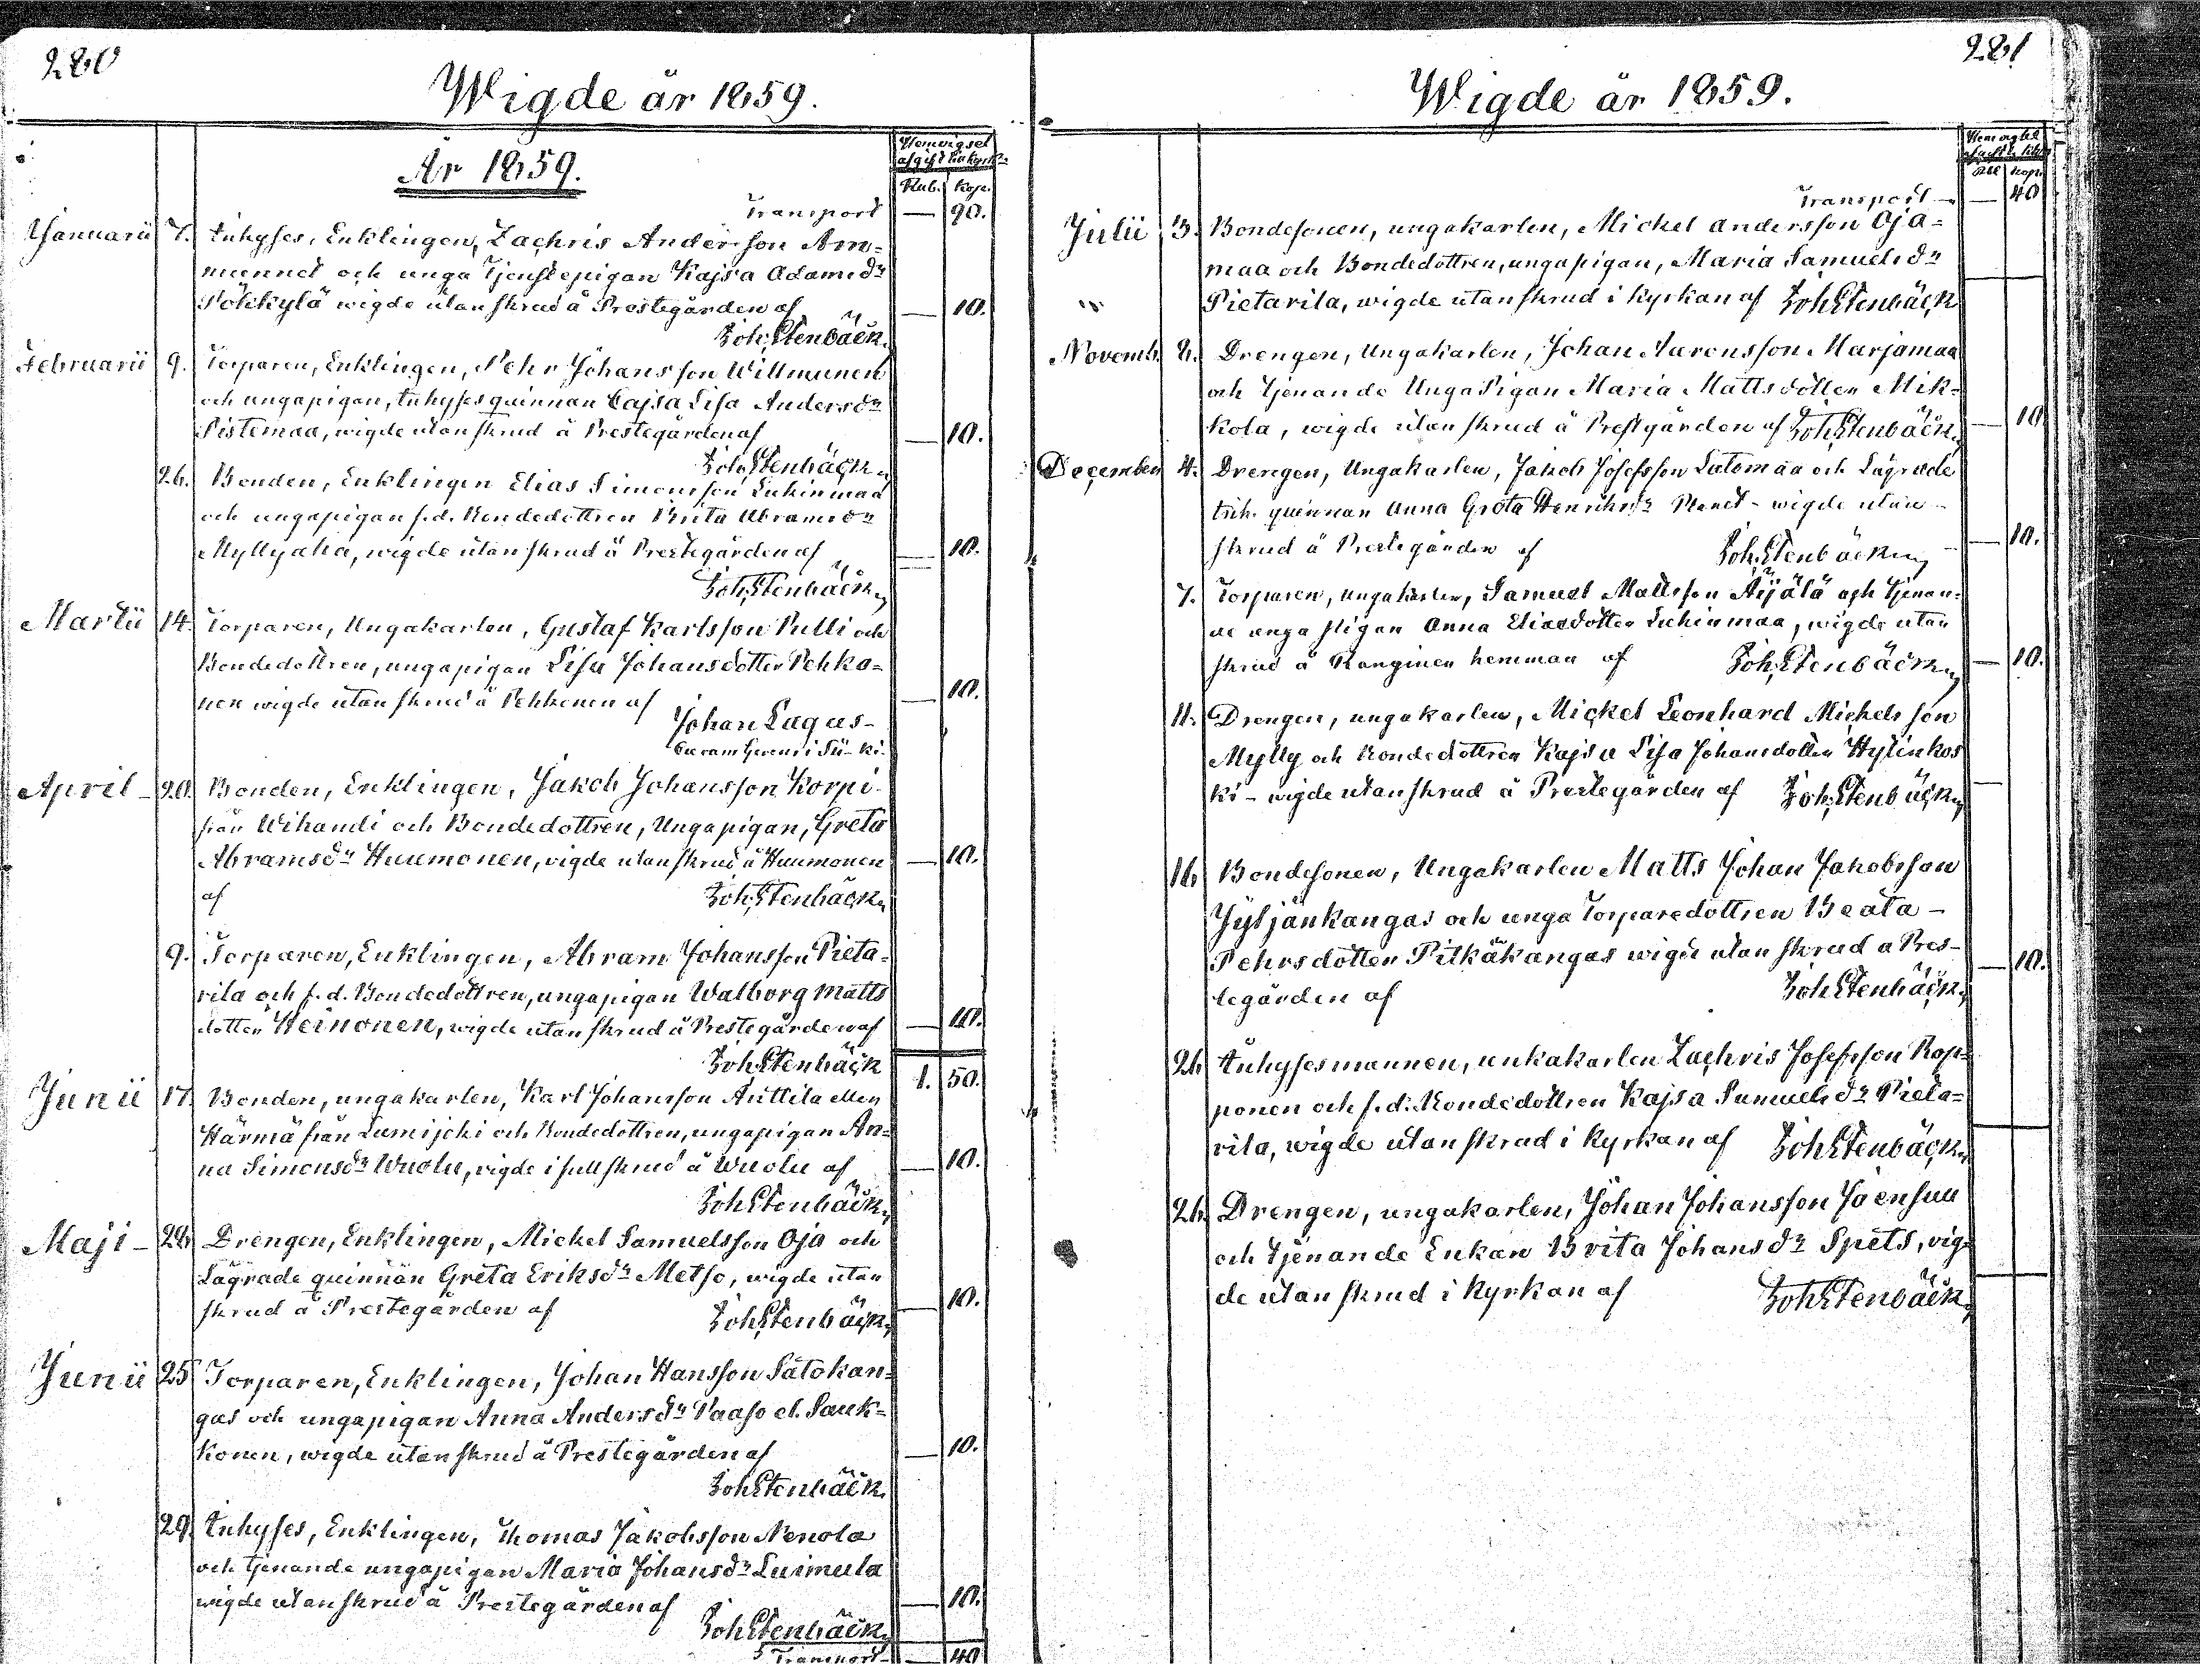 280
Wigde år 1859.
Hemvigsel
afgift till kyrk:
År 1859.
Rub. Kop.
Transport — 90.
Januarii 7. Inhyses, Enklingen, Zachris Andersson Am-
munnet och unga Tjenstepigan Kajsa Adamsdr
Pökkylä wigde utan skrud å Prestegården af — 10.
Joh. Stenbäck.
Februarii 9. Torparen, Enklingen, Pehr Johansson Willmunen
och ungapigan, Inhyses quinnan Cajsa Lisa Andersdr
Pistemaa, wigde utan skrud å Prestegården af — 10.
Joh. Stenbäck.
26. Bonden, Enklingen Elias Simonsson Luhinmaa
och ungapigan f.d. Bondedottren Brita Abramsdr
Myllyaha, wigde utan skrud å Prestegården af — 10.
Joh. Stenbäck.
Martii 14. Torparen, Ungakarlen, Gustaf Karlsson Pulli och
Bondedottren, ungapigan Lisa Johansdotter Pehko-
nen wigde utan skrud å Pehkonen af — 10.
Johan Lagus
April 20. Bonden, Enklingen, Jakob Johansson Korpi
från Wihandi och Bondedottren, Ungapigan, Greta
Abramsdr Huumonen, vigde utan skrud å Huumonen — 10.
af Joh. Stenbäck.
9. Torparen, Enklingen, Abram Johansson Pieta-
rila och f.d. Bondedottren, ungapigan Walborg Matts
dotter Heinonen, wigde utan skrud å Prestegården af — 10.
Joh Stenbäck
1. 50.
Junii 17. Bonden, ungakarlen, Karl Johansson Anttila eller
Härmä från Lumijoki och Bondedottren, ungapigan An-
na Simonsdr Wuolu, vigde i full skrud å Wuolu af — 10.
Joh Stenbäck.
Maji 22. Drengen, Enklingen, Mickel Samuelsson Oja och
Lägrade quinnan Greta Eriksdr Metso, wigde utan
skrud å Prestegården af — 10.
Joh Stenbäck.
Junii 25 Torparen, Enklingen, Johan Hansson Sätokan-
gas och ungapigan Anna Andersdr Paaso el. Sauk-
konen, wigde utan skrud å Prestegården af — 10.
Joh Stenbäck.
29. Inhyses, Enklingen, Thomas Jakobsson Nenola
och tjenande ungapigan Maria Johansdr Luimula
wigde utan skrud å Prestegården af — 10.
Joh Stenbäck.
Transport — 40
281
Wigde år 1859.
Hemvigsel
Rbl Kop.
Transport — 40
Julii 3. Bondesonen, ungakarlen, Mickel Andersson Oja-
maa och Bondedottren, ungapigan, Maria Samuelsdr
Pietarila, wigde utan skrud i Kyrkan af Joh Stenbäck
Novemb. 2. Drengen, Ungakarlen, Johan Aaronsson Marjamaa
och Tjenande Unga Pigan Maria Mattsdotter Mik-
kola, wigde utan skrud å Prestgården af Joh Stenbäck. — 10
December 4. Drengen, Ungakarlen, Jakob Josefsson Latomaa och Lägrade
quinnan Anna Greta Henriksdr Planet - wigde utan
skrud å Prestegården af Joh. Stenbäck — 10.
7. Torparen, ungakarlen, Samuel Mattsson Äijälä och tjenan-
de unga pigan Anna Eliasdotter Luhinmaa, wigde utan
skrud å Ranginen hemman af Joh. Stenbäck — 10.
11. Drengen, ungakarlen, Mickel Leonhard Michelsson
Mylly och Bondedottren Kajsa Lisa Johansdotter Hylinkos
ki - wigde utan skrud å Prestegården af Joh. Stenbäck —
16. Bondesonen, Ungakarlen Matts Johan Jakobsson
Jyljänkangas och unga Torparedottren Beata -
Pehrsdotter Pitkäkangas wigde utan skrud å Pres-
tegården af Joh Stenbäck. — 10.
26. Inhysesmannen, unkakarlen Zachris Josefsson Rop-
ponen och f.d. Bondedottren Kajsa Samuelsdr Pieta-
rila, wigde utan skrud i Kyrkan af Joh Stenbäck.
26. Drengen, ungakarlen, Johan Johansson Joensuu
och tjenande Enkan Brita Johansdr Spets, vig-
de utan skrud i Kyrkan af Joh Stenbäck.